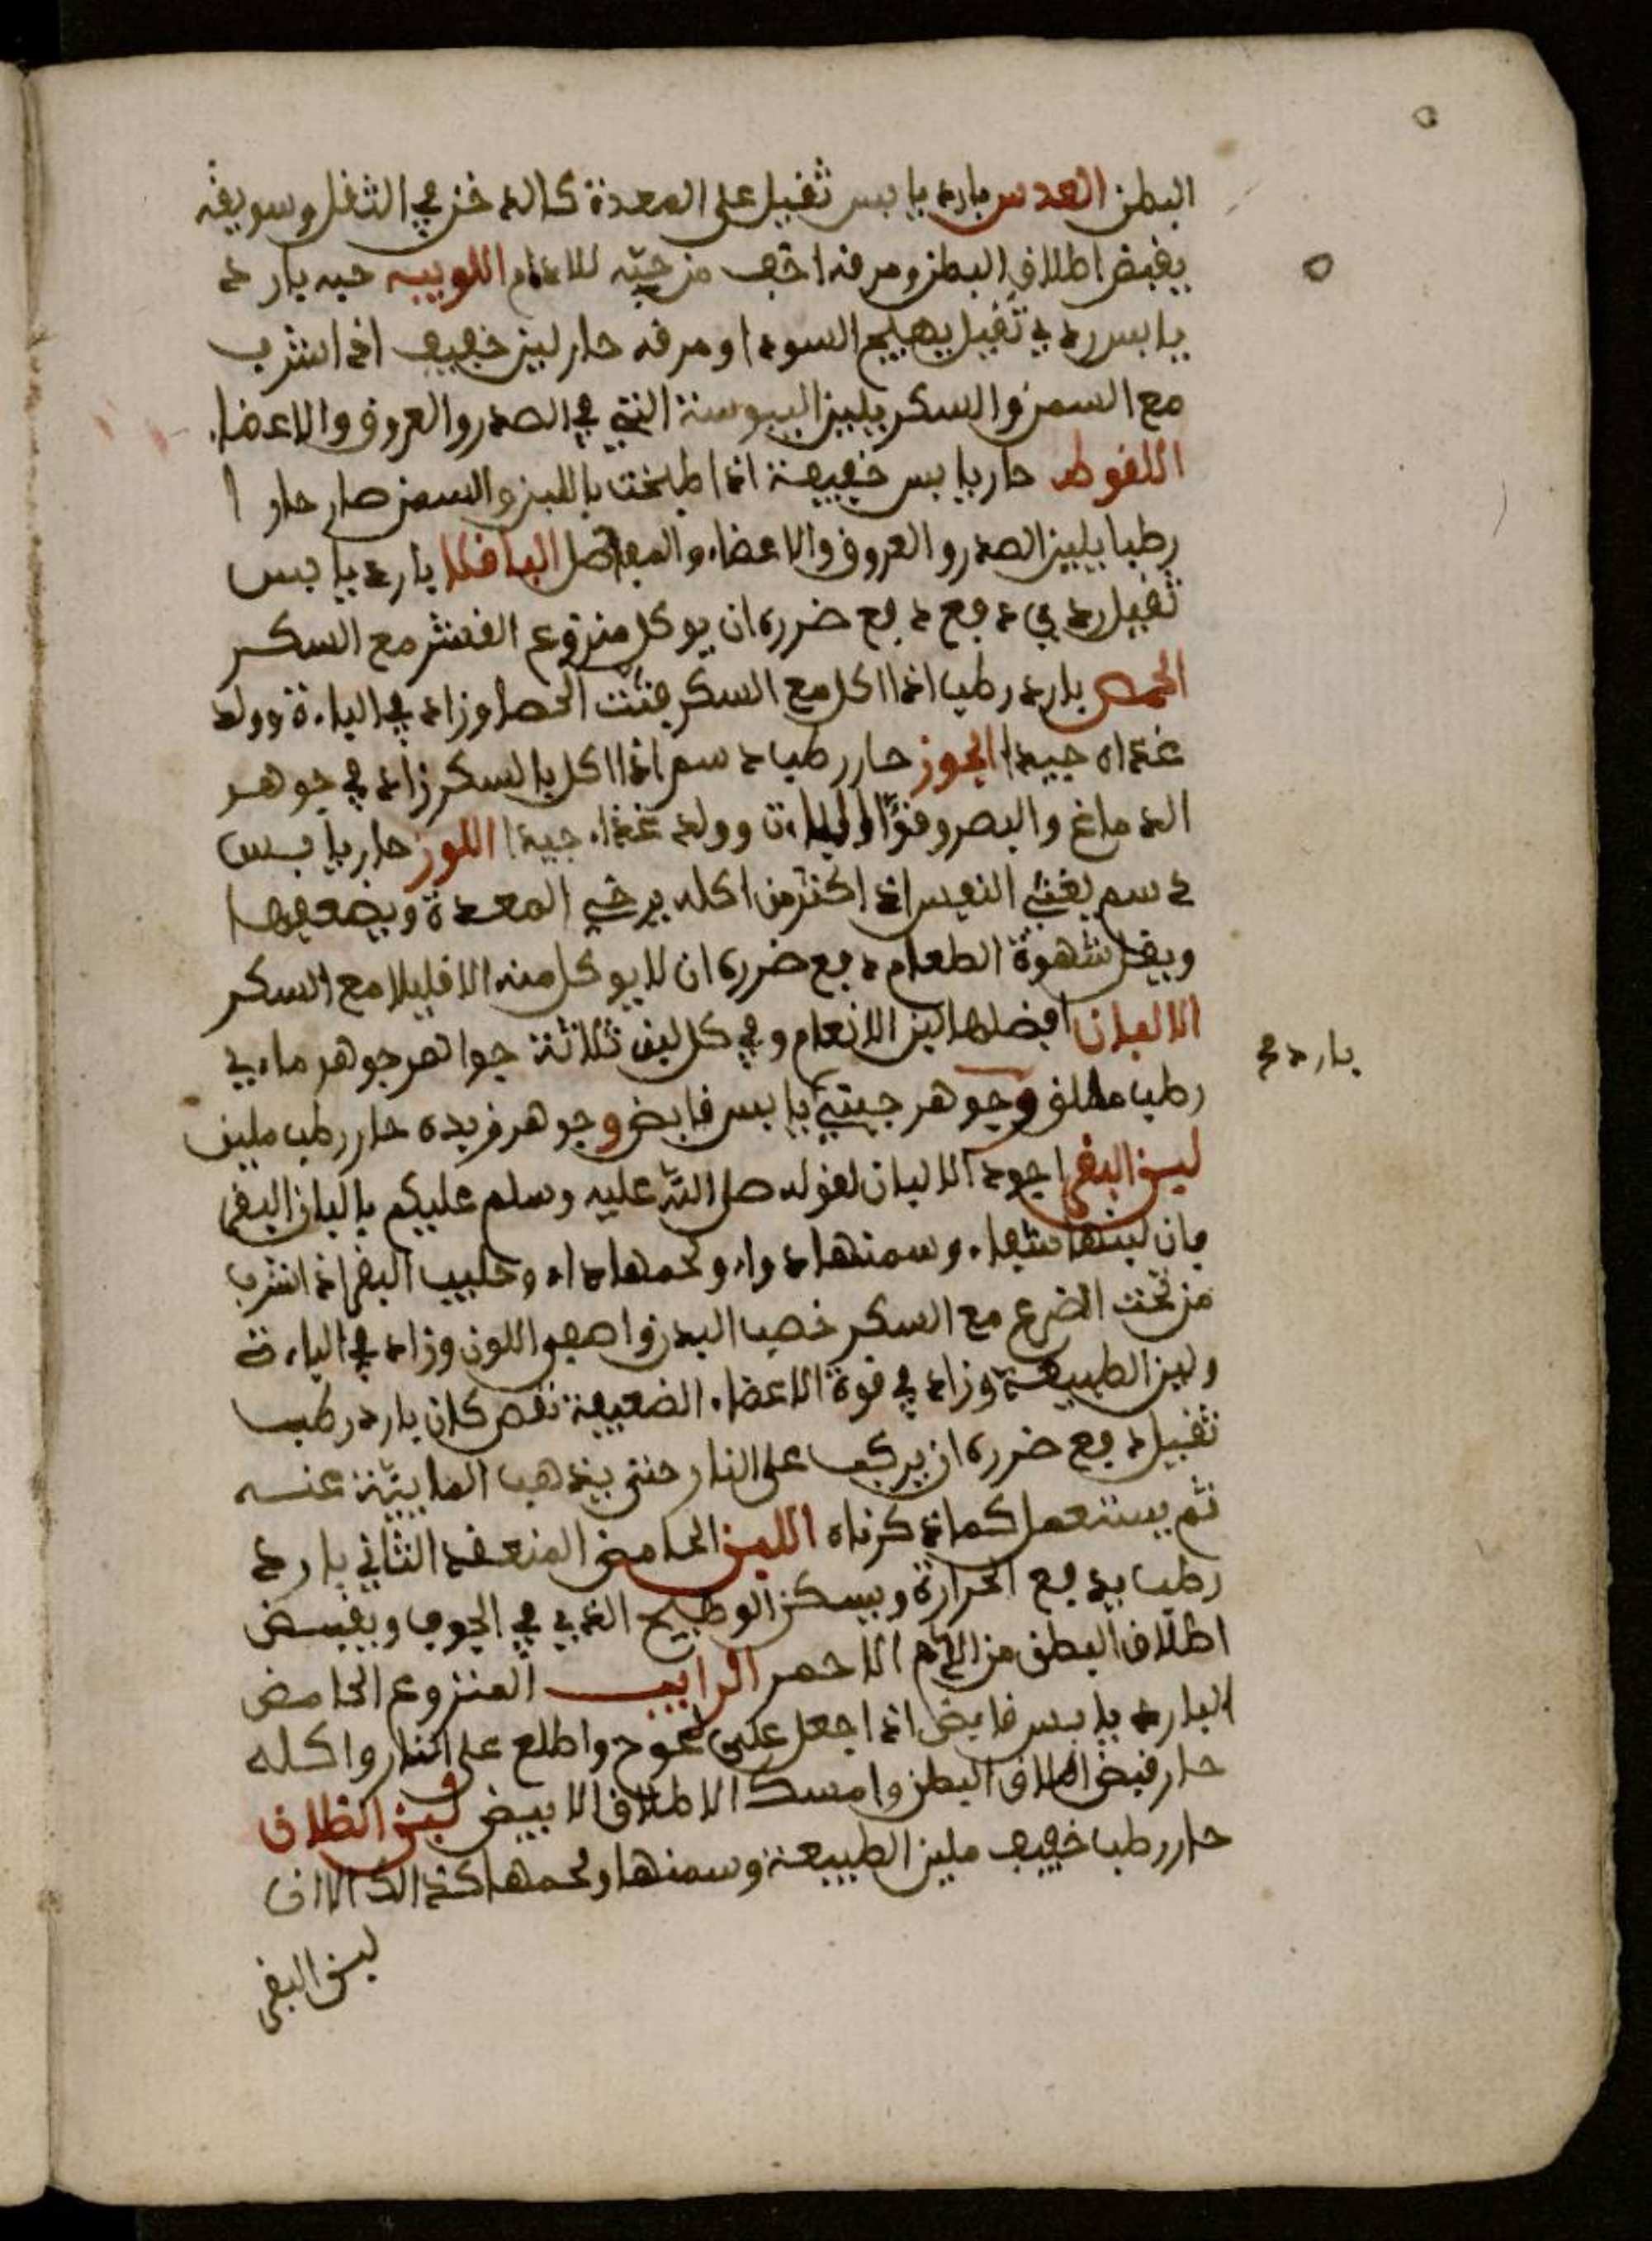 البطن العدس بارد يابس ثقيل على المعدة كالدخن في الثقل وسويقه
يقبض اطلاق البطن ومرقه اخف من حبه للادام اللوبيه حبه بارد
يابس ردي ثقيل يهيج السودا ومرقه حار لين خفيف اذا شرب
مع السمن والسكر يلين اليبوسة التي في الصدر والعروق والاعضاء
اللقوط حار يابس خفيفة اذا طبخت باللبن والسمن صار حارا
رطبا يلين الصدر والعروق والاعضاء والمفاصل الباقلا بارد يابس
ثقيل ردي دفع ضرره ان يوكل منزوع القشر مع السكر
الحمص بارد رطب اذا اكل مع السكر فتت الحصا وزاد في الباءة وولد
غذاء جيدا الجوز حار رطب دسم اذا اكل بالسكر زاد في جوهر
الدماغ والبصر وقوا الباءة وولد غذاء جيدا اللوز حار يابس
دسم يغثي النفس اذا اكثر من اكله يرخي المعدة ويضعفها
ويقل شهوة الطعام دفع ضرره ان لا يوكل منه الا قليلا مع السكر
الالبان افضلها لبن الانعام وفي كل لبن ثلاثة جواهر جوهر ماءي
بارد
رطب مطلق وجوهر جبني يابس قابض وجوهر زبده حار رطب ملين
لبن البقر اجود الالبان لقوله صلى الله عليه وسلم عليكم بالبان البقر
فان لبنها شفاء وسمنها دواء ولحمها داء وحليب البقر اذا شرب
من تحت الضرع مع السكر خصب البدن واصفى اللون وزاد في الباءة
ولين الطبيعة وزاد في قوة الاعضاء الضعيفة نقص كان بارد رطب
ثقيل دفع ضرره ان يركب على النار حتى يذهب المايية عنه
ثم يستعمل كما ذكرناه اللبن الحامض المنعقد الثاني بارد
رطب يدفع الحرارة ويسكن الوطيح الذي في الجوف ويقبض
اطلاق البطن من الدم الاحمر الرايب المنزوع الحامض
البارد يابس قابض اذا جعل على واطلع على النار واكله
حار قبض اطلاق البطن وامسك الاطلاق الابيض لبن
حار رطب خفيف ملين الطبيعة وسمنها ولحمها كذالك الا ان
لبن البقر